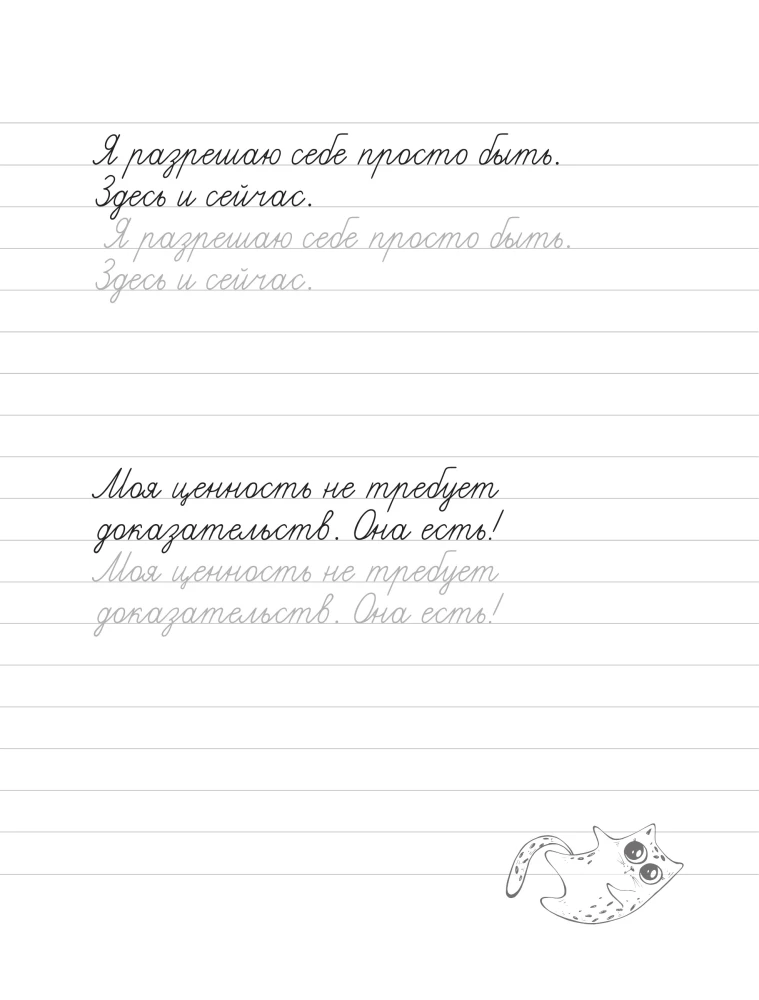 Я разрешаю себе просто быть.
Здесь и сейчас.
Я разрешаю себе просто быть.
Здесь и сейчас.
Моя ценность не требует
доказательств. Она есть!
Моя ценность не требует
доказательств. Она есть!